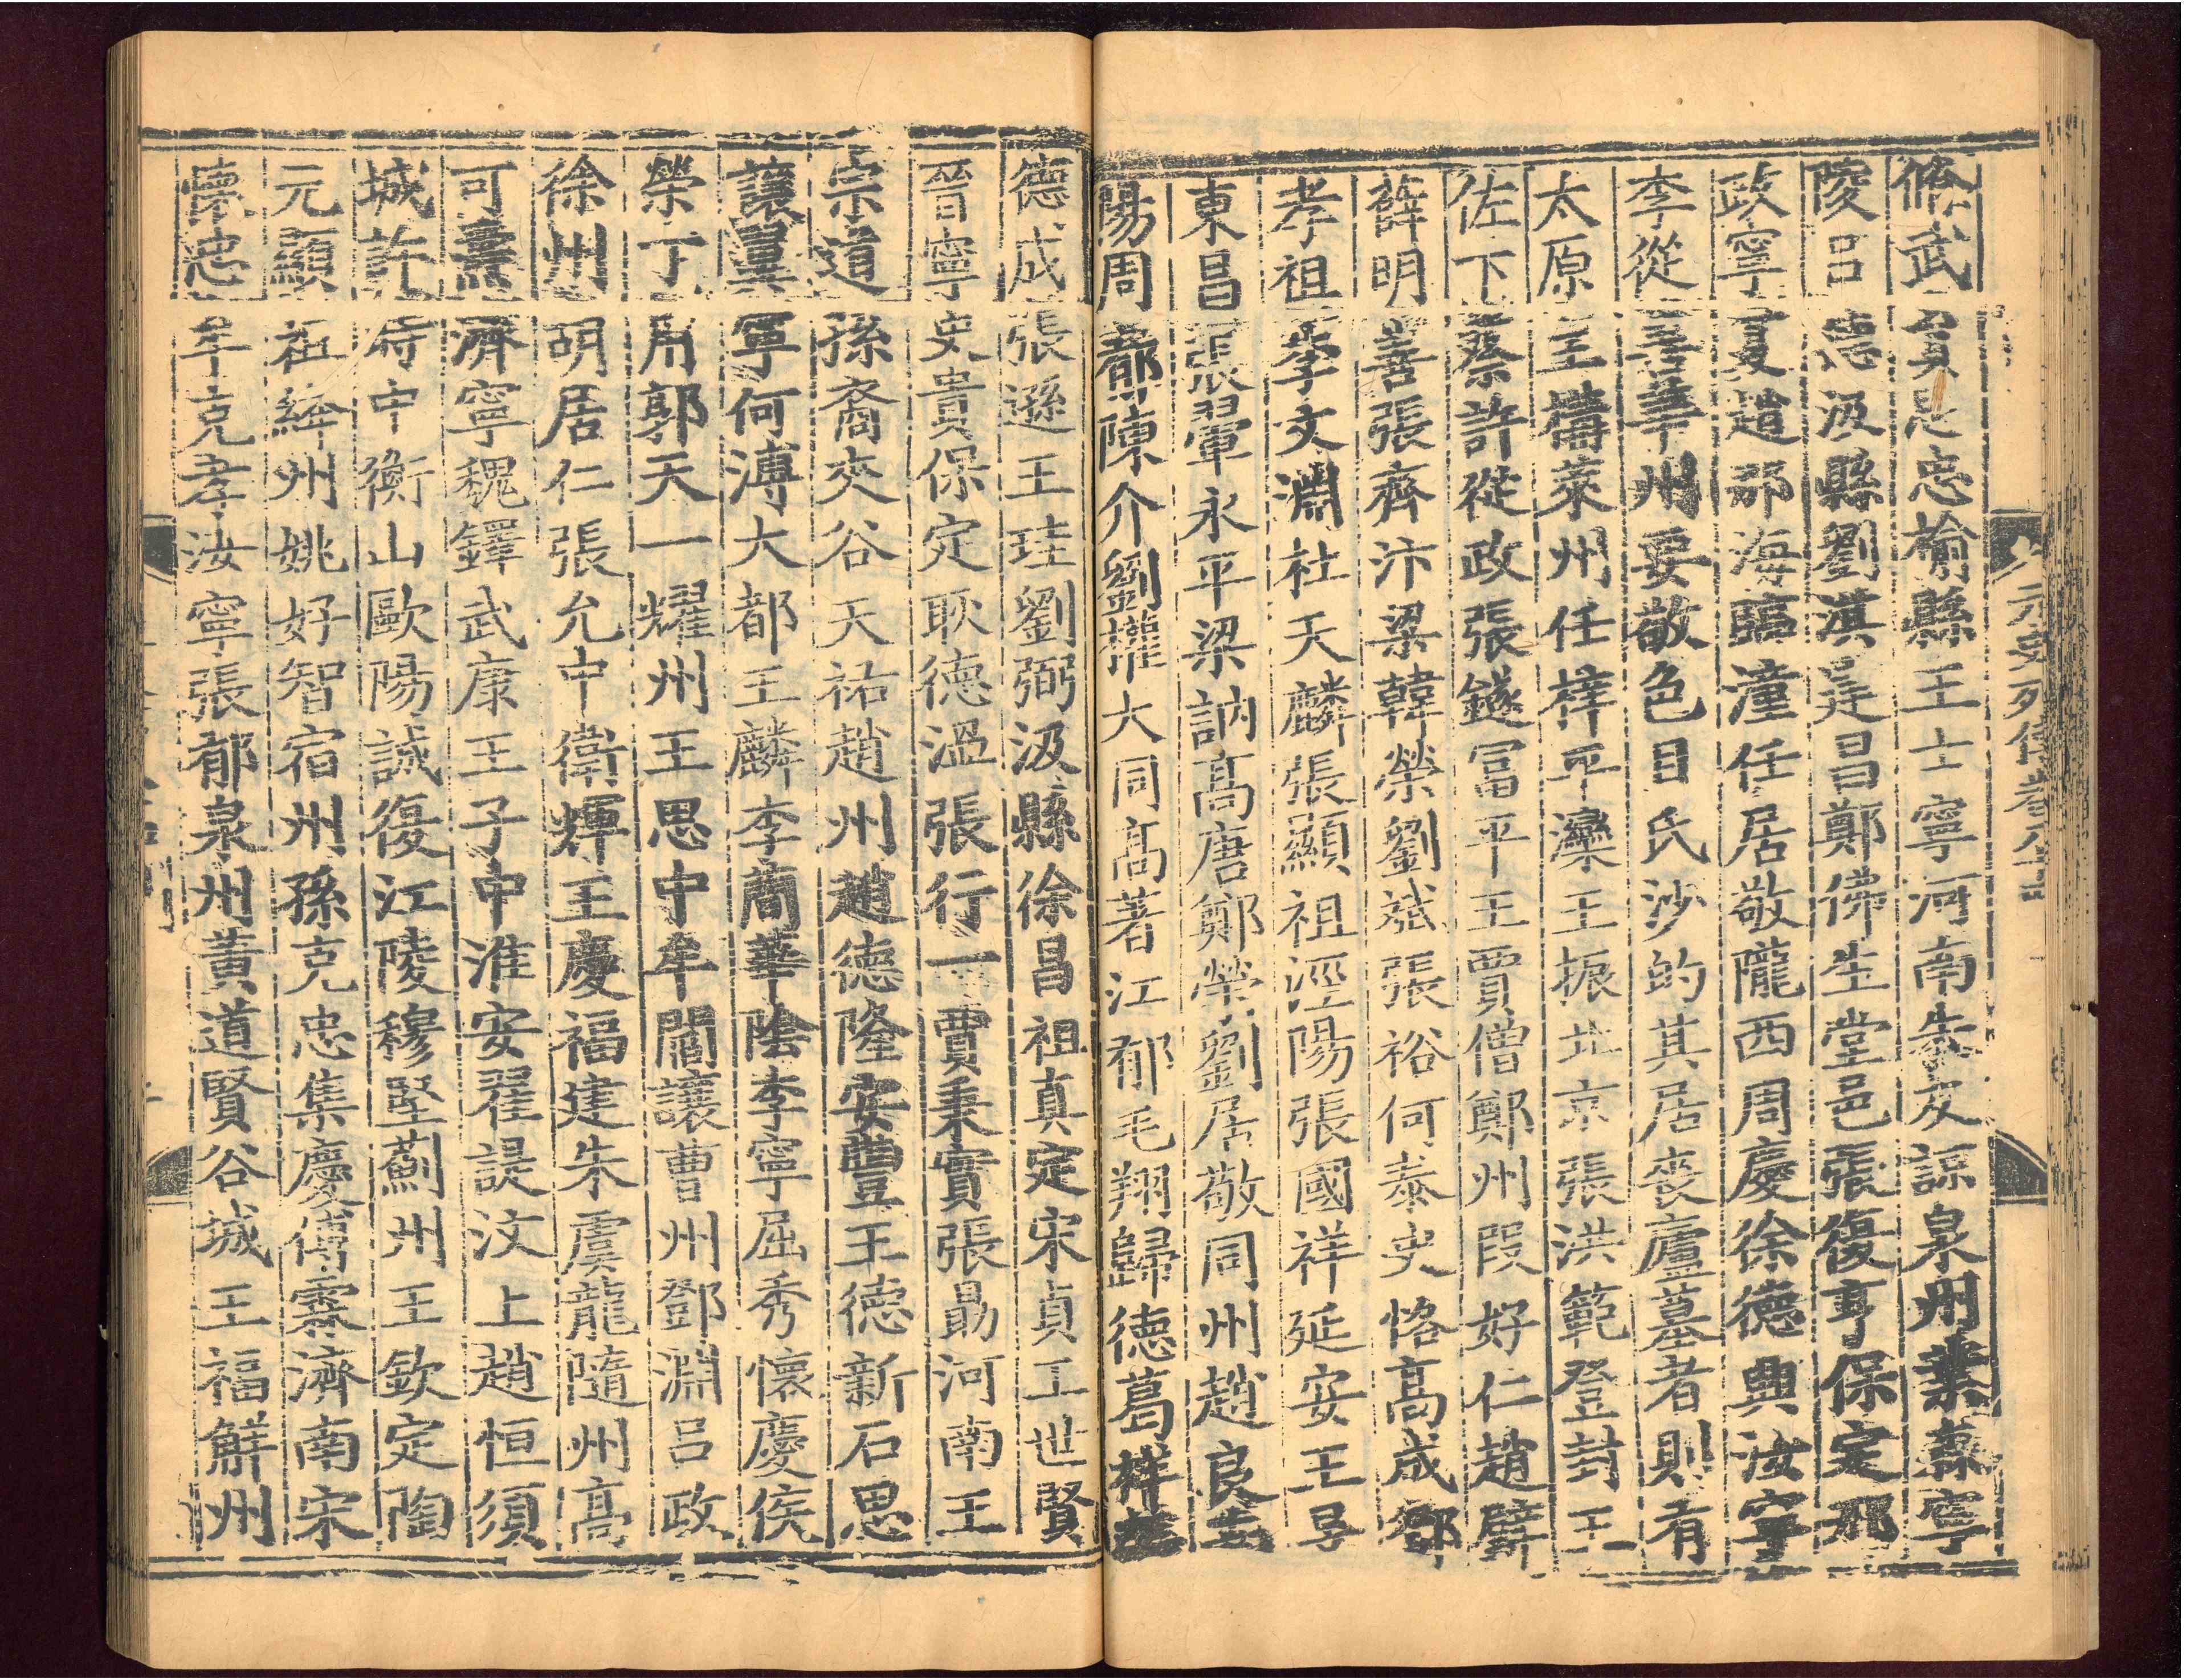 脩武員思忠榆縣王士寧河南朱友諒泉州葉森寧
陵呂德汲縣劉淇建昌鄭佛生堂邑張復亨保定邢
政寧夏趙那海臨潼任居敬隴西周慶徐德興汝寧
李從善華州要敬色目氏沙的其居喪廬墓者則有
太原王構萊州任梓平灤王振北京張洪範登封王
佐下蔡許從政張鐩冨平王賈僧鄭州段好仁趙璧
薛明善張齊汴梁韓榮劉斌張裕何泰史恪高成鄧
孝祖李文淵杜天麟張顯祖涇陽張國祥延安王旻
東昌張翬永平梁訥高唐鄭榮劉居敬同州趙良
陽周郁陳介劉權大同高著江郁毛翔歸德葛祥
德成張遜王珪劉弼汲縣徐昌祖真定宋貞王世賢
晉寧史貴保定耿德溫張行一賈秉實張勗河南王
宗道孫裔夾谷天祐趙州趙德隆安豐王德新石思
讓冀寧何溥大都王麟李簡華陰李寧屈秀懷慶侯
榮丁用郭天一耀州王思中牟閻讓曹州鄧淵呂政
徐州胡居仁張允中衛輝王慶福建朱虞龍隨州高
可燾濟寧魏鐸武康王子中淮安翟諟汶上趙恒須
城許時中衡山歐陽誠復江陵穆堅薊州王欽定陶
元顯祖絳州姚好智宿州孫克忠集慶傅霖濟南宋
懷忠牟克孝汝寧張郁泉州黃道賢谷城王福解州